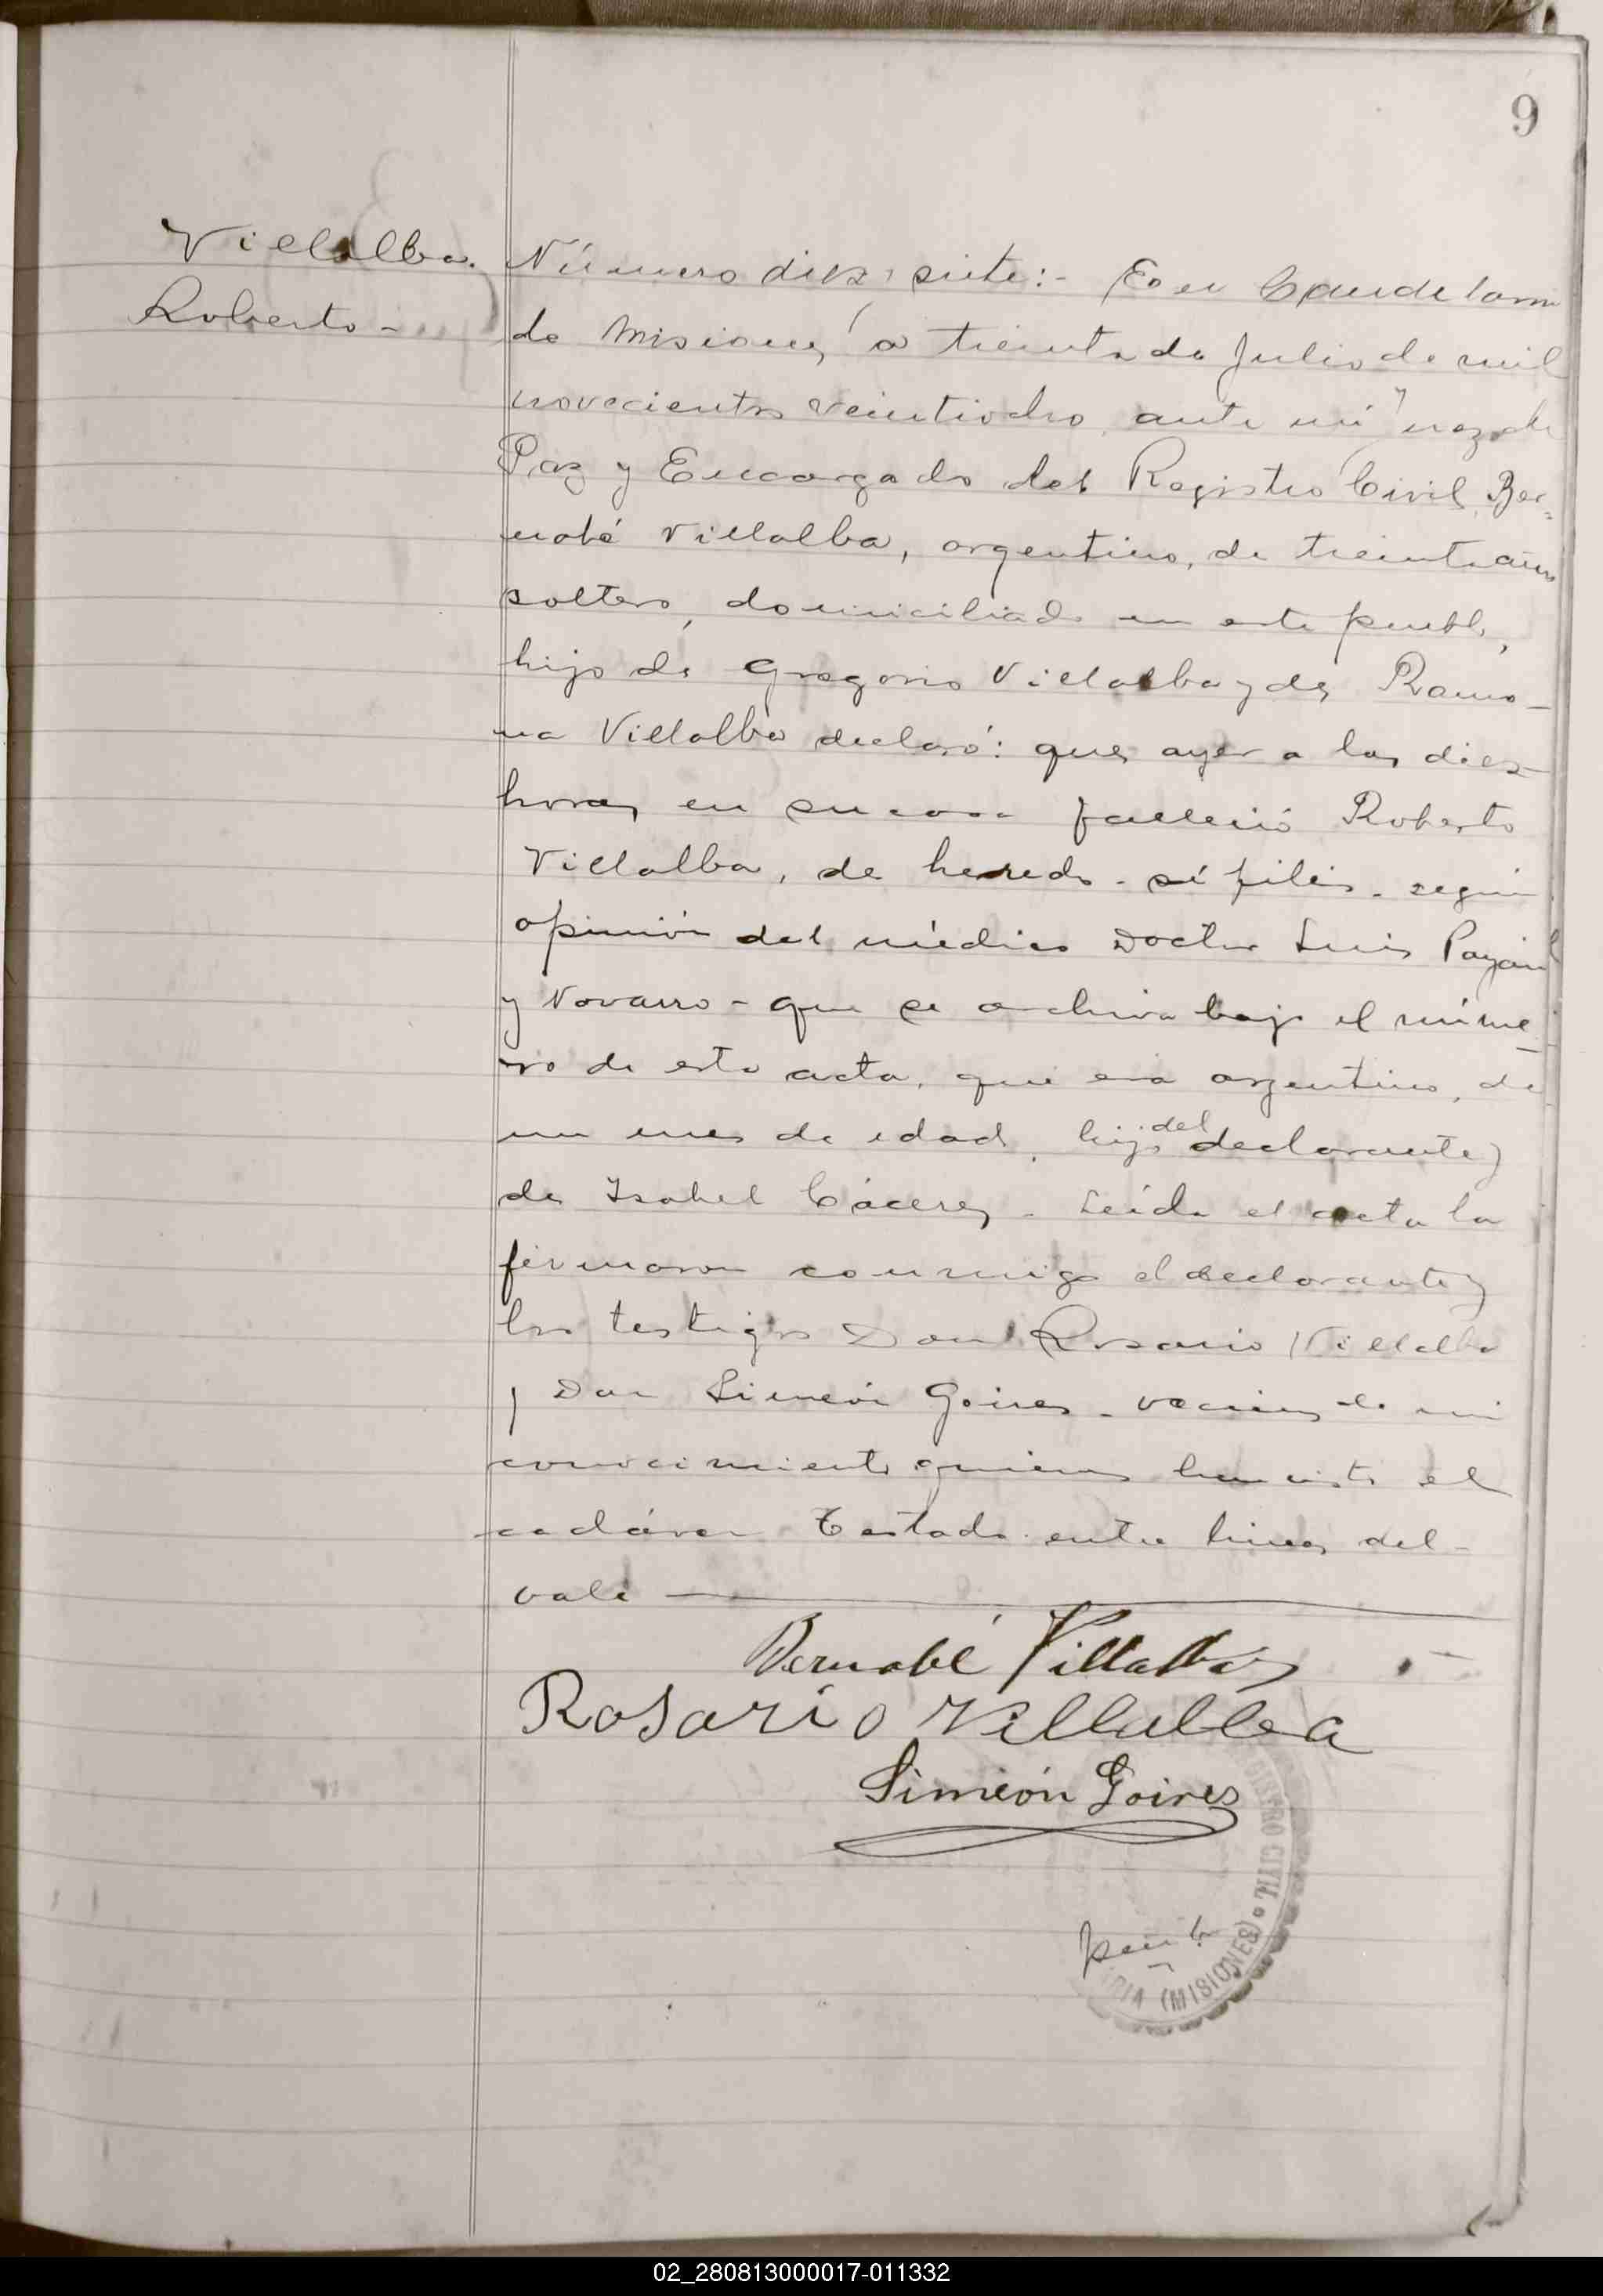 9
Villalba
Roberto -
Número diez y siete:- En Candelaria
de Misiones, a treinta de Julio de mil
novecientos veintiocho, ante mí Juez de
Paz y Encargado del Registro Civil, Ber-
nabé Villalba, argentino, de treinta años
soltero, domiciliado en este pueblo,
hijo de Gregorio Villalba y de Ramo-
na Villalba declaró: que ayer a las diez
horas en su casa falleció Roberto
Villalba, de heredo-sífilis - según
opinión del médico Doctor Luis Payán
y Navarro - que se archiva bajo el núme-
ro de esta acta, que era argentino, de
un mes de edad, hijo del declarante y
de Isabel Cáceres - Leída el acta la
firmaron conmigo el declarante y
los testigos Don Rosario Villalba
y Don Simeón Goires - vecinos de mi
conocimiento quienes han visto el
cadáver Testado entre lineas del -
vale
Bernabé Villalba
Rosario Villalba
Simeón Goires
GISTRO CIVIL
RIA (MISIONES)